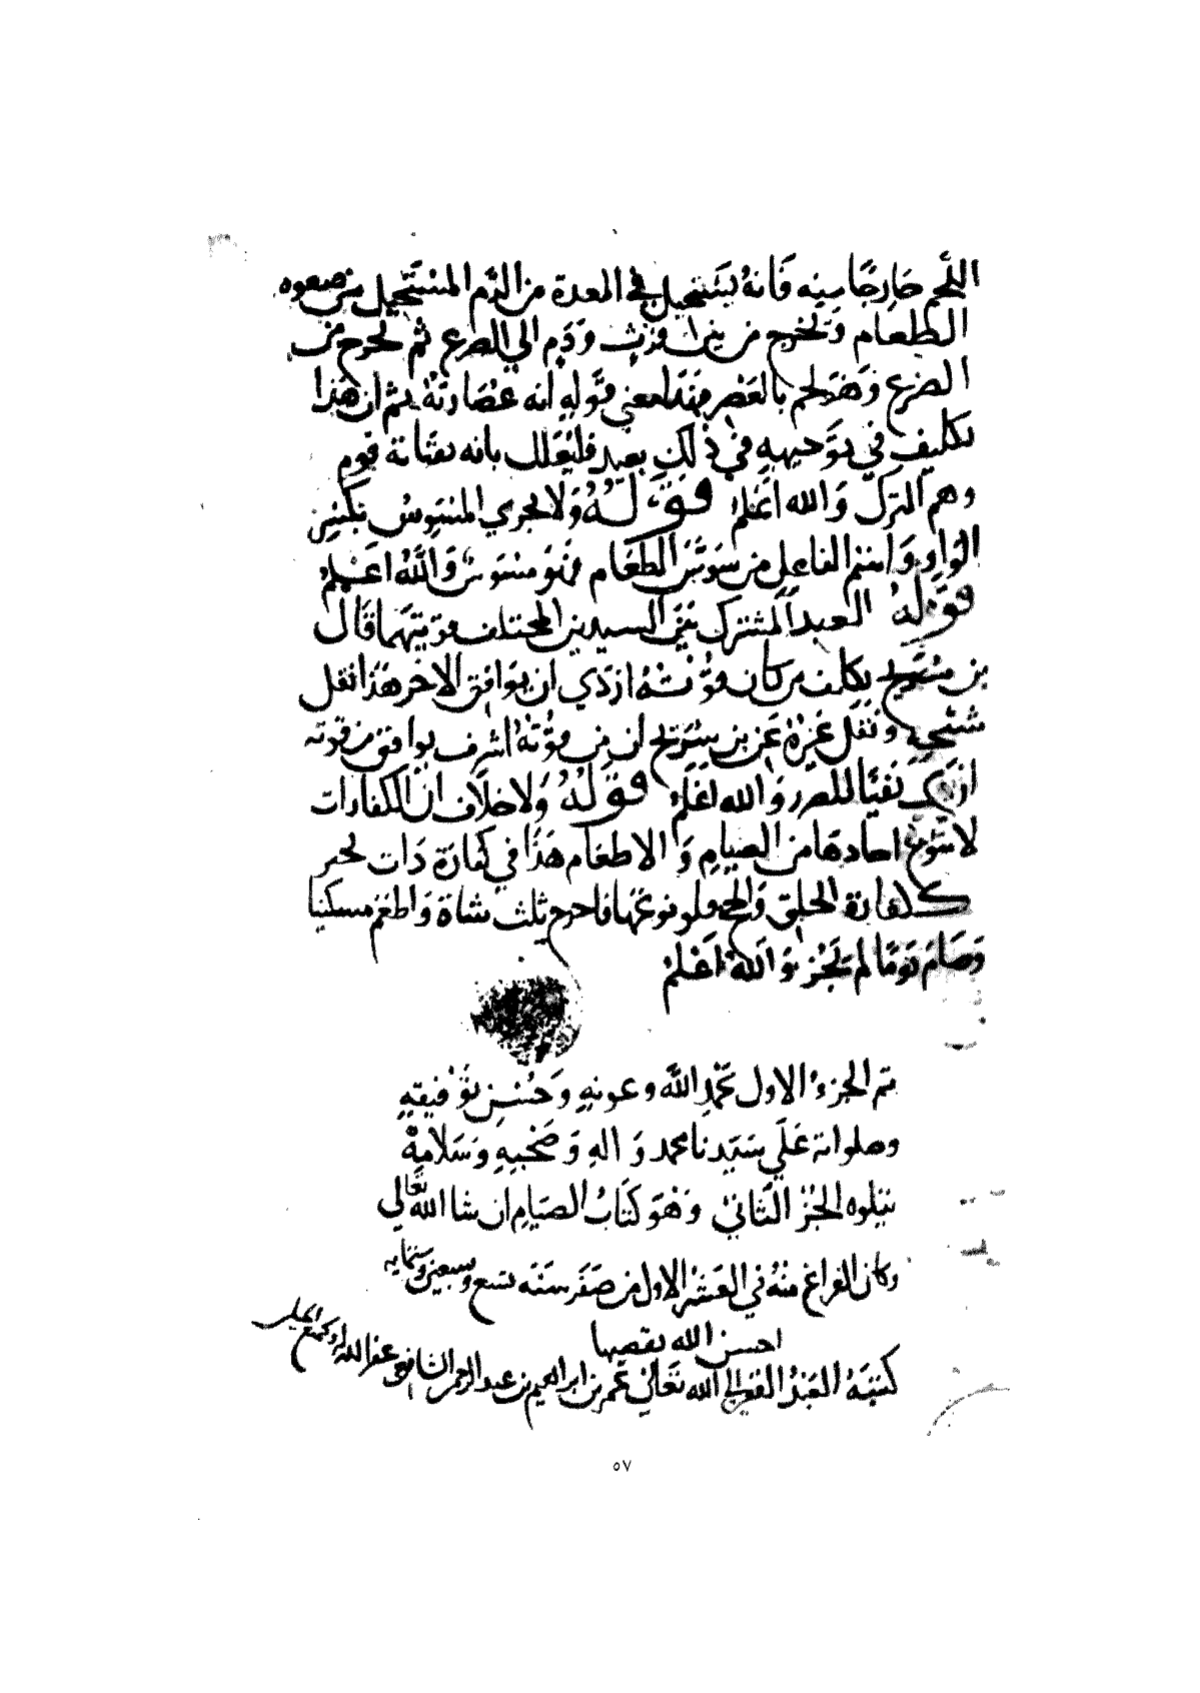 اللحم خارجا منه فانه يستحيل في المعدة من الدم المستحيل من صفوه
الطعام وتخرج من بين فرث ودم الي الضرع ثم تخرج من
الضرع بالعصر فهذا معني قوله انه عصارته ثم ان هذا
تكليف في توجيهه في ذلك بعيد فليعلل بانه يقتاته قوم
وهم الترك والله اعلم قوله ولا يجزي المسوس بكسر
الواو واسم الفاعل من سوس الطعام فهو مسوس والله اعلم
قوله العبد المشترك بين السيدين المختلف قوتيهما قال
بن سريج يكلف من كان قوته اردي ان يوافق الاخر هذا نقل
شيخي ونقل غيره عن بن سريج ان من قوته اشرف يوافق من قوته
اردي نفيا للضرر والله اعلم قوله ولا خلاف ان الكفارات
لا تتوزع احادها من الصيام والاطعام هذا في كفارة ذات تخير
ككفارة الحلق فلو نوعها فاخرج ثلث شاة واطعم مسكينا
وصام يوما لم يجز والله اعلم
تم الجزء الاول بحمد الله وعونه وحسن توفيقه
وصلواته علي سيدنا محمد واله وصحبه وسلامه
يتلوه الجز الثاني وهو كتاب الصيام ان شا الله تعالي
وكان الفراغ منه في العشر الاول من صفر سنه تسع وسبعين وستمايه
احسن الله تقضيها
كتبه العبد الفقير الي الله تعالي عمر بن ابراهيم بن عبد الرحمن الشافعي عفا الله
٥٧